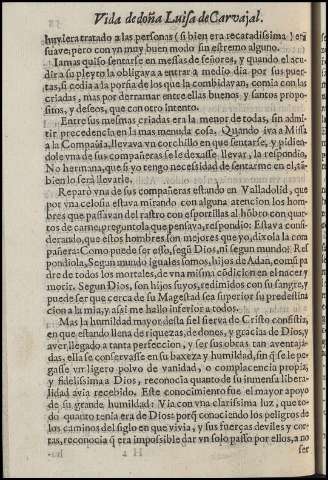 Vida de doña Luisa de Carvajal.
huylera tratado a las personas (si bien era recatadissima) era
suaue; pero con vn muy buen modo sin estremo alguno.
Iamas quiso sentarse en messas de señores, y quando el acu
dir a su pleyto la obligaua a entrar a medio dia por sus puer
tas, si cedia a la porfia de los que la conbidauan, comia con las
criadas, mas por derramar entre ellas buenos y santos propo-
sitos, y deseos, que con otro intento.
Entre sus mesmas criadas era la menor de todas, sin admi-
tir precedencia en la mas menuda cosa. Quando iva a Missa
a la Compañia, llevava vn corchillo en que sentarse, y pidien-
dole vna de sus compañeras se le dexasse llevar, la respondio,
No hermana, que si yo tengo necessidad de sentarme en el, tã-
bien lo serà llevarle.
Reparò vna de sus compañeras estando en Valladolid, que
por vna celosia estava mirando con alguna atencion los hom-
bres que passavan del rastro con esportillas al hõbro con quar-
tos de carne, preguntola que pensava, respondio: Estava consi-
derando, que estos hombres son mejores que yo, dixola la com
pañera: Como puede ser esso, segũ Dios, ni segun mundo? Res
pondiola, Segun mundo iguales somos, hijos de Adan, como pa
dre de todos los mortales, de vna misma cõdicion en el nacer y
morir. Segun Dios, son hijos suyos, redimidos con su sangre, y
puede ser que cerca de su Magestad sea superior su predestina
cion a la mia, y assi me hallo inferior a todos.
Mas la humildad mayor desta fiel sierva de Cristo consistia,
en que estando llena de riquezas, de dones, y gracias de Dios, y
aver llegado a tanta perfeccion, y ser sus obras tan aventaja-
das, ella se conservasse en su baxeza y humildad, sin q̃ se le pe-
gasse vn ligero polvo de vanidad, o complacencia propia,
y fidelissima a Dios, reconocia quanto de su inmensa libera-
lidad avia recebido. Este conocimiento fue el mayor apoyo
de su grande humildad: Via con vna clarissima luz, que to-
do quanto tenia era de Dios: porq̃ conociendo los peligros de
los caminos del siglo en que vivia, y sus fuerças deviles y cor-
tas, reconocia q̃ era imposible dar vn solo passo por ellos, a no
ser